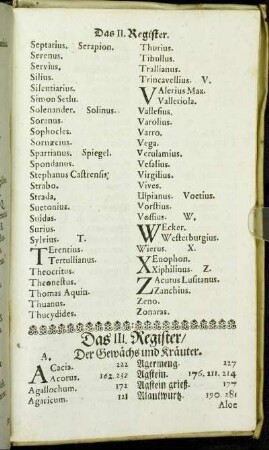 Das II. Register.
Septarius. Serapion.
Serenus.
Servius.
Silius.
Silentiarius.
Simon Sethi.
Solenander. Solinus.
Soranus.
Sophocles.
Sornæcius.
Spartianus. Spiegel.
Spondanus.
Stephanus Castrensis;
Strabo.
Strada.
Suetonius.
Suidas.
Surius.
Sylvius. T.
TErentius.
Tertullianus.
Theocritus.
Theonestus.
Thomas Aquin.
Thuanus.
Thucydides.
Thurius.
Tibullus.
Trallianus.
Trincavellius. V.
VAlerius Max.
Valleriola.
Vallesius.
Varolius.
Varro.
Vega.
Verulamius.
Vesalius.
Virgilius.
Vives.
Ulpianus. Voetius.
Vorstius.
Vossius. W.
WEcker.
Westerburgius.
Wierus. X.
XEnophon.
Xiphilinus. Z.
ZAcutus Lusitanus.
Zanchius.
Zeno.
Zonaras.
Das III. Register/
Der Gewächs und Kräuter.
A.
ACacia. 222
Acorus. 162. 232
Agallochum. 172
Agaricum. 121
Agermeng. 227
Agstein. 176. 211. 214
Agstein grieß. 177
Alantwurtz. 190. 281
Aloe